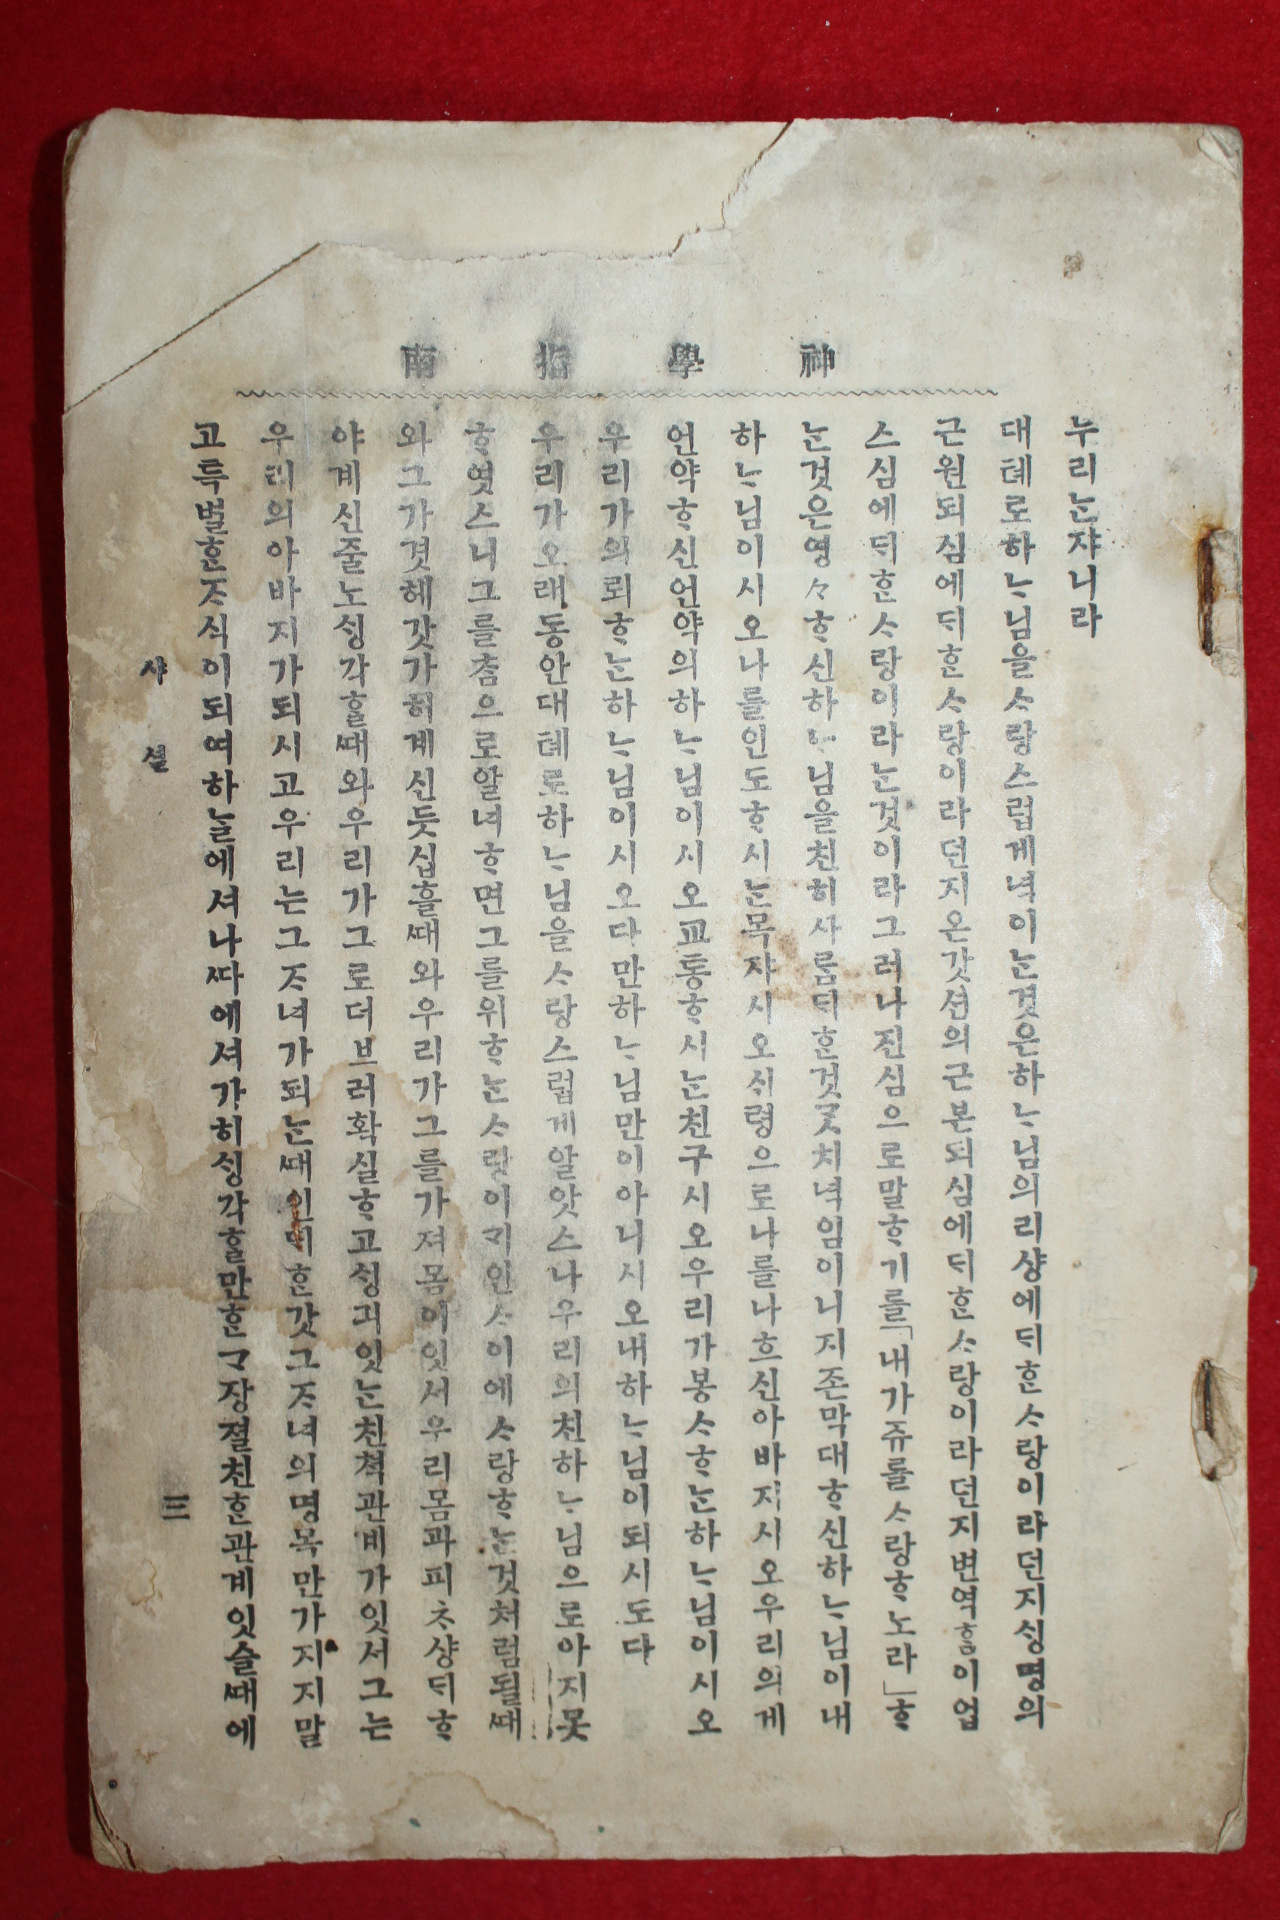 神學指南
누리ᄂᆞᆫ쟈니라
대톄로하ᄂᆞ님을ᄉᆞ랑스럽게녁이ᄂᆞᆫ것은하ᄂᆞ님의리샹에ᄃᆡᄒᆞᆫᄉᆞ랑이라던지ᄉᆡᆼ명의
근원되심에ᄃᆡᄒᆞᆫᄉᆞ랑이라던지온갓션의근본되심에ᄃᆡᄒᆞᆫᄉᆞ랑이라던지변역ᄒᆞᆷ이업
스심에ᄃᆡᄒᆞᆫᄉᆞ랑이라ᄂᆞᆫ것이라그러나진심으로말ᄒᆞ기를「내가쥬를ᄉᆞ랑ᄒᆞ노라」ᄒᆞ
ᄂᆞᆫ것은영々ᄒᆞ신하ᄂᆞ님을친히사ᄅᆞᆷᄃᆡᄒᆞᆫ것ᄀᆞᆺ치녁임이니지존막대ᄒᆞ신하ᄂᆞ님이내
하ᄂᆞ님이시오나를인도ᄒᆞ시ᄂᆞᆫ목쟈시오셔령으로나를나흐신아바지시오우리의게
언약ᄒᆞ신언약의하ᄂᆞ님이시오교통ᄒᆞ시ᄂᆞᆫ친구시오우리가봉ᄉᆞᄒᆞᄂᆞᆫ하ᄂᆞ님이시오
우리가의뢰ᄒᆞᄂᆞᆫ하ᄂᆞ님이시오다만하ᄂᆞ님만이아니시오내하ᄂᆞ님이되시도다
우리가오래동안대톄로하ᄂᆞ님을ᄉᆞ랑스럽게알앗스나우리의친하ᄂᆞ님으로아지못
ᄒᆞ엿스니그를ᄎᆞᆷ으로알녀ᄒᆞ면그를위ᄒᆞᄂᆞᆫᄉᆞ랑이ᄀᆡ인ᄉᆞ이에ᄉᆞ랑ᄒᆞᄂᆞᆫ것처럼될ᄯᅢ
와그가겻헤갓가히계신듯십흘ᄯᅢ와우리가그를가져몸이잇서우리몸과피ᄎᆞ샹ᄃᆡᄒᆞ
야계신줄노ᄉᆡᆼ각ᄒᆞᆯᄯᅢ와우리가그로더브러확실ᄒᆞ고ᄉᆡᆼ긔잇ᄂᆞᆫ친쳑관계가잇서그는
우리의아바지가되시고우리는그ᄌᆞ녀가되ᄂᆞᆫᄯᅢ인ᄃᆡᄒᆞᆫ갓그ᄌᆞ녀의명목만가지지말
고특별ᄒᆞᆫᄌᆞ식이되여하ᄂᆞᆯ에셔나ᄯᅡ에셔가히ᄉᆡᆼ각ᄒᆞᆯ만ᄒᆞᆫᄀᆞ장졀친ᄒᆞᆫ관계잇슬ᄯᅢ에
샤셜
三